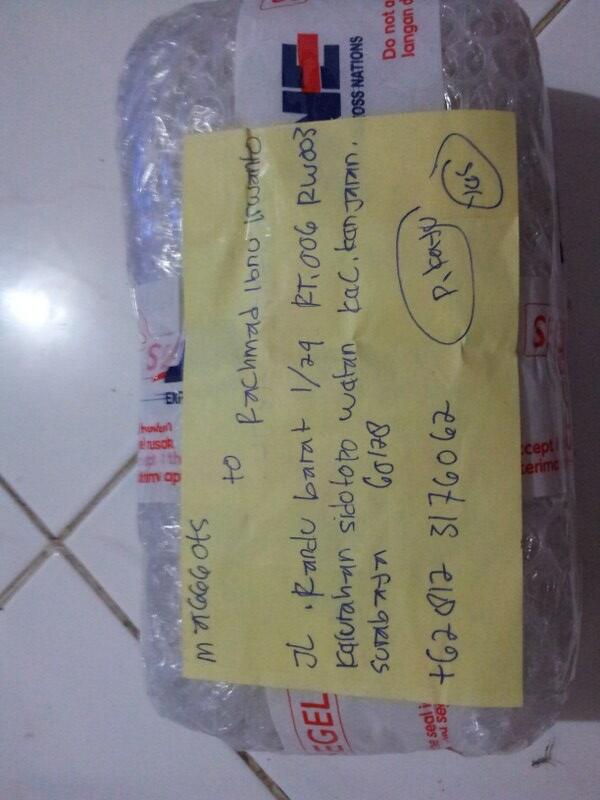 maGGGOts
to Rachmad ibnu kwanto
JL. Randu barat 1/29 RT.006 RW003
Kelurahan sidotopo wetan kec. kenjeran.
surabaya 60128
+62 812 3176062
P. kayu
Do not a
Jangan d
NE
OSS NATIONS
EGEL
S
S
EXP
ccept i
terima